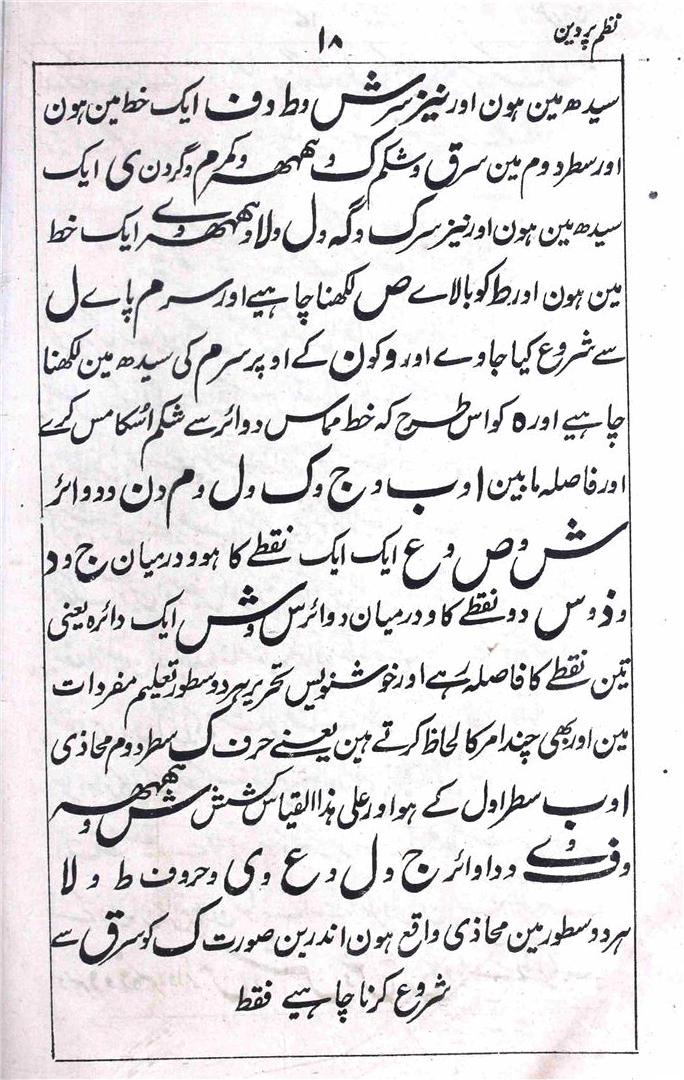 نظم پروین
۱۸
سیدھ مین ہون اور نیز سرش و ط و ف ایک خط مین ہون
اور سطر دوم مین سرق و شکم ک و ہمھہ و کمر م و گردن ی ایک
سیدھ مین ہون اور نیز سرک و گہ و ل و لا و ہمھہ و ے ایک خط
مین ہون اور ط کو بالاے ص لکھنا چاہیے اور سرم پاے ل
سے شروع کیا جاوے اور و کو ن کے اوپر سرم کی سیدھ مین لکھنا
چاہیے اور ہ کو اس طرح کہ خط مماس دوائر سے شکم اسکا مس کرے
اور فاصلہ مابین ا و ب و ج و ک و ل و م و ن و دوائر
ش و ص و ع ایک ایک نقطے کا ہو و درمیان ج و د
و ذ و س دو نقطے کا و درمیان دوائر س و ش ایک دائرہ یعنی
تین نقطے کا فاصلہ رہے اور خوشنویس تحریر ہر دو سطور تعلیم مفردات
مین اور بھی چند امر کا لحاظ کرتے ہین یعنے حرف ک سطر دوم محاذی
ا و ب سطر اول کے ہو اور علی ہذا القیاس کشش ش و ہمھہ
و ف و ے و دوائر ج و ل و ع و ی و حروف ط و لا
ہر دو سطور مین محاذی واقع ہون اندرین صورت ک کو سرق سے
شروع کرنا چاہیے فقط